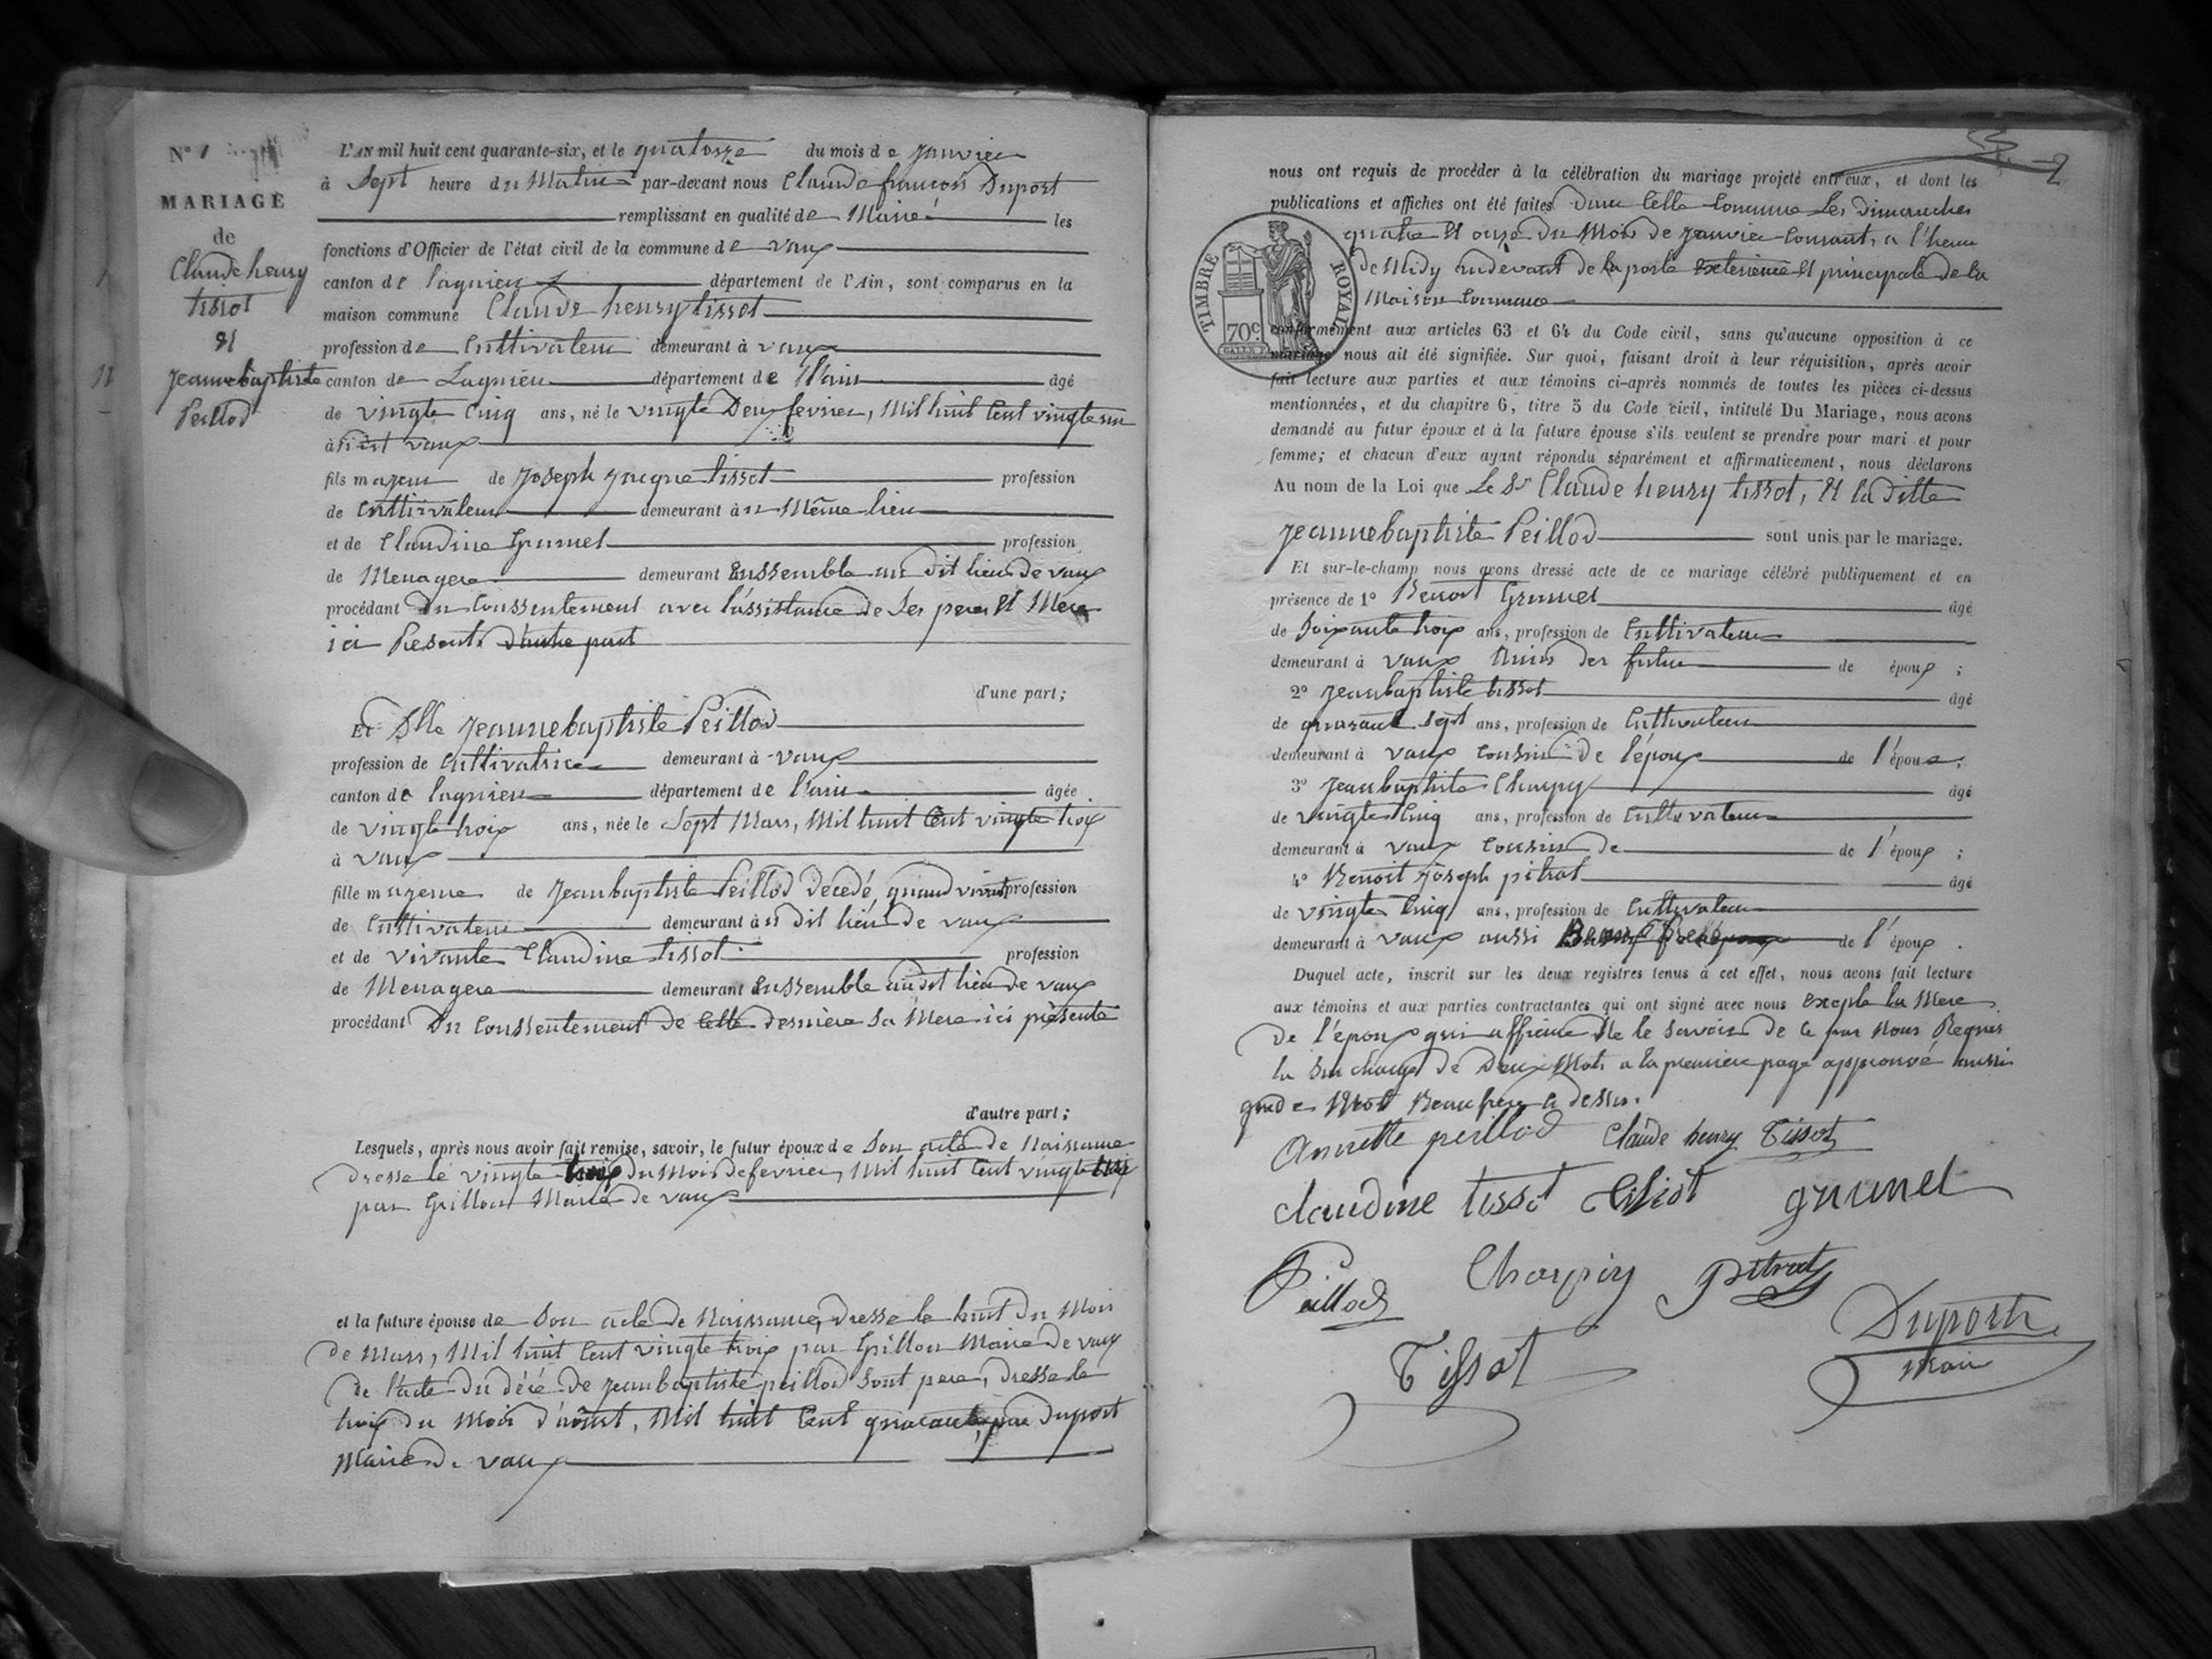 N° 1
MARIAGE
de
Claude henry
tissot
et
jeannebaptiste
Peillod
L'AN mil huit cent quarante-six, et le quatorze du mois de janvier
à Sept heure du Matin par-devant nous Claude françois Duport
remplissant en qualité de Maire les
fonctions d'Officier de l'état civil de la commune de vaux
canton de lagnieu département de l'Ain, sont comparus en la
maison commune Claude henry tissot
profession de Cultivateur demeurant à vaux
canton de Lagnieu département de l'ain âgé
de vingte Cinq ans, né le vingte Deux fevrier, Mil huit Cent vingte un
à vaux
fils majeur de joseph jacque tissot profession
de Cultivateur demeurant au Même lieu
et de Claudine Grumel profession
de Menagere demeurant Enssemble au dit lieu de vaux
procédant du Conssentement avec l'assistance de Ses pere et Mere
ici Present d'autre part
d'une part;
Et Dlle jeannebaptiste Peillod
profession de Cultivatrice demeurant à vaux
canton de lagnieu département de l'ain âgée
de vingte troix ans, née le Sept Mars, Mil huit Cent vingte troix
à vaux
fille majeure de jeanbaptiste Peillod decedé, quand vivait profession
de Cultivateur demeurant au dit lieu de vaux
et de vivante Claudine tissot profession
de Menagere demeurant Enssemble au dit lieu de vaux
procédant Du Conssentement de Cette derniere Sa Mere ici présente
d'autre part;
Lesquels, après nous avoir fait remise, savoir, le futur époux de Son acte de Naissance
dresse le vingte troix du Mois de fevrier, Mil huit Cent vingte
par Grillon Maire de vaux
et la future épouse de Son acte de Naissance, dresse le huit du Mois
de Mars, Mil huit Cent vingte troix par Grillon Maire de vaux
de l'acte du décé de jeanbaptiste peillod Sont pere, dresse le
troix du Mois d'août, Mil huit Cent quarante, par Duport
Maire de vaux
2
nous ont requis de procéder à la célébration du mariage projeté entr'eux, et dont les
publications et affiches ont été faites dans Cette Commune les dimanches
quatre et onze du Mois de janvier Courant, a l'heure
de Midy audevant de la porte exterieure et principale de la
Maison Commune
TIMBRE ROYAL
70c
conformément aux articles 63 et 64 du Code civil, sans qu'aucune opposition à ce
mariage nous ait été signifiée. Sur quoi, faisant droit à leur réquisition, après avoir
fait lecture aux parties et aux témoins ci-après nommés de toutes les pièces ci-dessus
mentionnées, et du chapitre 6, titre 5 du Code civil, intitulé Du Mariage, nous avons
demandé au futur époux et à la future épouse s'ils veulent se prendre pour mari et pour
femme; et chacun d'eux ayant répondu séparément et affirmativement, nous déclarons
Au nom de la Loi que Le Sr Claude henry tissot, et la ditte
jeannebaptiste Peillod sont unis par le mariage.
Et sur-le-champ nous avons dressé acte de ce mariage célébré publiquement et en
présence de 1° Benoit Grumel âgé
de Soixante troix ans, profession de Cultivateur
demeurant à vaux de époux ;
2° jeanbaptiste tissot âgé
de quarante Sept ans, profession de Cultivateur
demeurant à vaux Cousin de l'époux de l'épouse;
3° jeanbaptiste Charpy âgé
de vingte Cinq ans, profession de Cultivateur
demeurant à vaux Cousin de de l'époux ;
4° Benoit joseph pitrat âgé
de vingte Cinq ans, profession de Cultivateur
demeurant à vaux aussi Beaux frere de l'époux .
Duquel acte, inscrit sur les deux registres tenus à cet effet, nous avons fait lecture
aux témoins et aux parties contractantes qui ont signé avec nous excepte la Mere
de l'époux qui affirme Ne le Savoir de Ce par Nous Requis
la Surcharge de Deux Mots a la premiere page approuvé aussi
que de Mot Beaufrere Ci dessu.
Annette peillod Claude henry Tissot
claudine tissot tissot grumel
Peillod Charpiy Pitrat
Tissot Duport
Maire